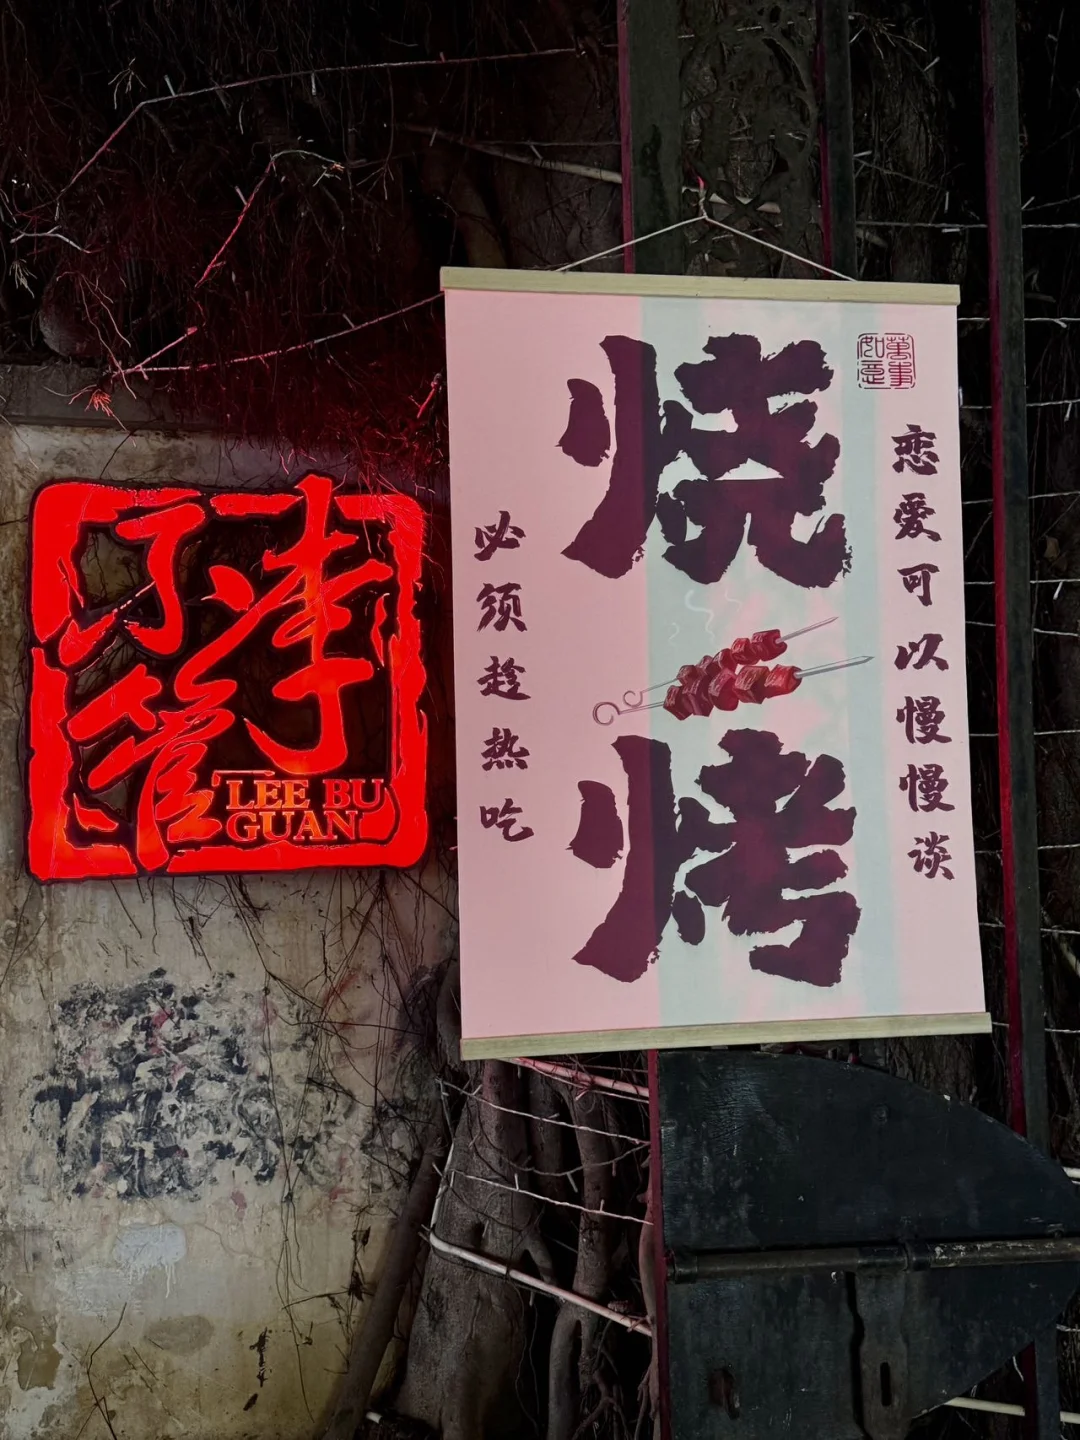 李不管
LEE BU
GUAN
萬事如意
恋爱可以慢慢谈
烧烤
必须趁热吃